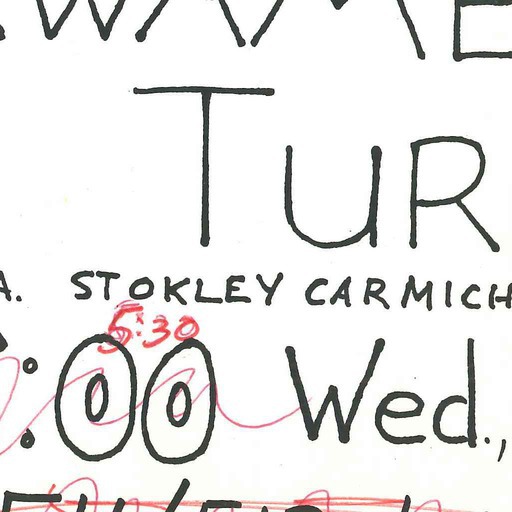 WAME
TUR
A. STOKLEY CARMICH
5:30
:00 Wed.,